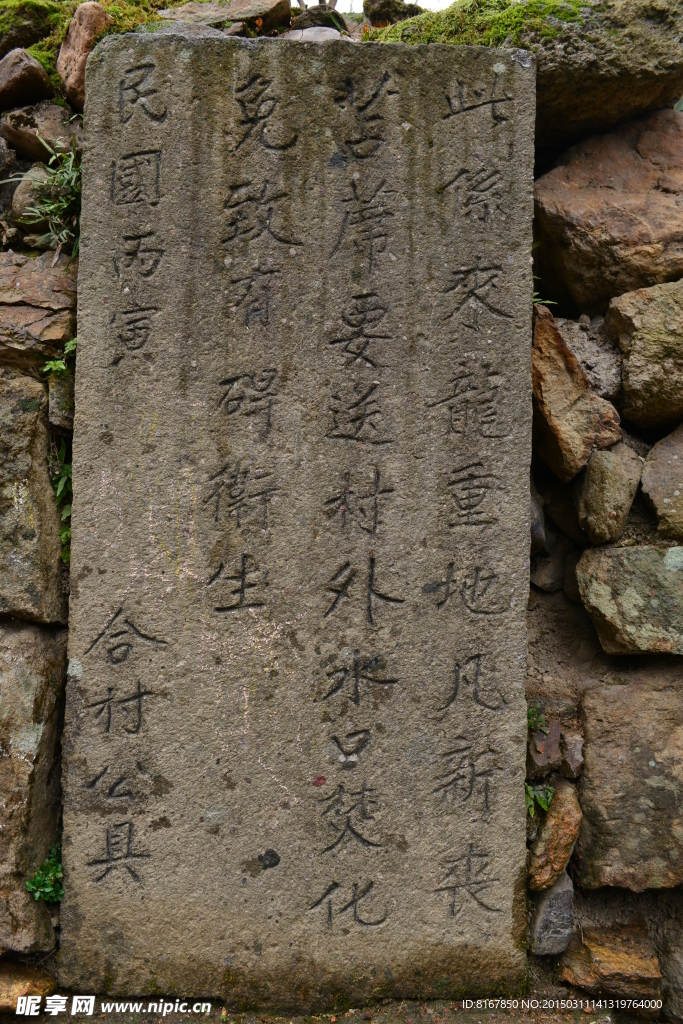 此係來龍重地凡新喪
苫蓆要送村外水口焚化
免致有碍衛生
民國丙寅 合村公具
昵享网 www.nipic.cn
ID:8167850 NO:20150311141319764000